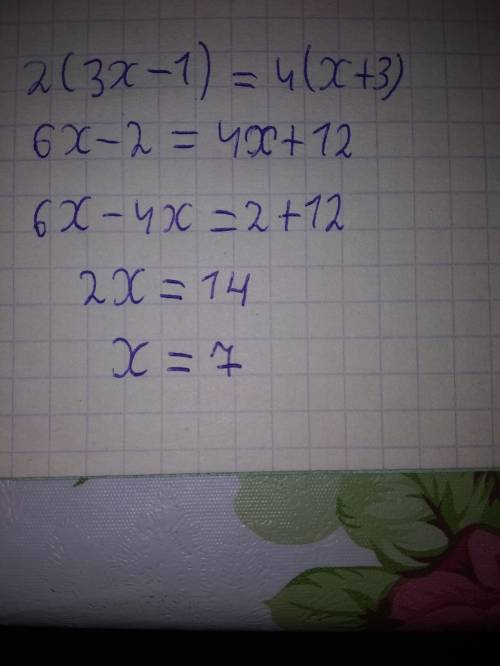 2(3x-1) = 4(x+3)
6x-2 = 4x+12
6x-4x=2+12
2x = 14
x = 7